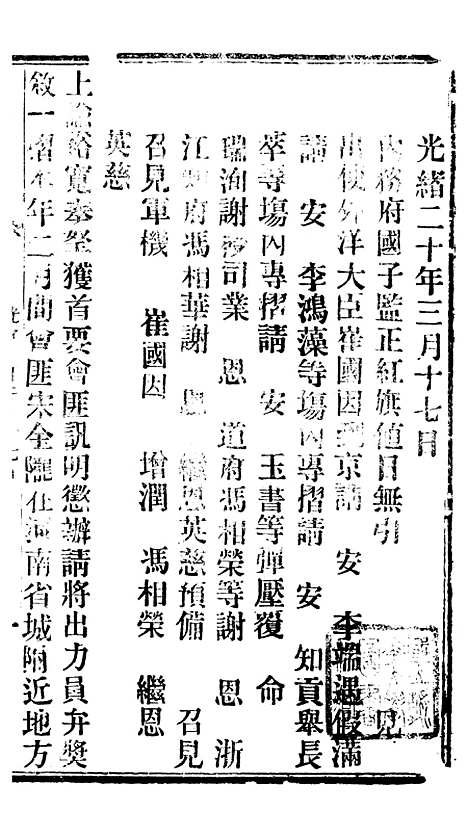 光緒二十年三月十七日
內務府國子監正紅旗值日無引 見
出使外洋大臣崔國因到京請 安 李端遇假滿
請 安 李鴻藻等塲內專摺請 安 知貢舉長
萃等塲內專摺請 安 玉書等彈壓覆 命
瑞洵謝 司業 恩 道府馮相榮等謝 恩 浙
江 府馮相華謝 恩 繼恩英慈預備 召見
召見軍機 崔國因 增潤 馮相榮 繼恩
英慈
上諭裕寬奏拏獲首要會匪訊明懲辦請將出力員弁獎
敘一摺本年二月間會匪宋金隴在河南省城附近地方